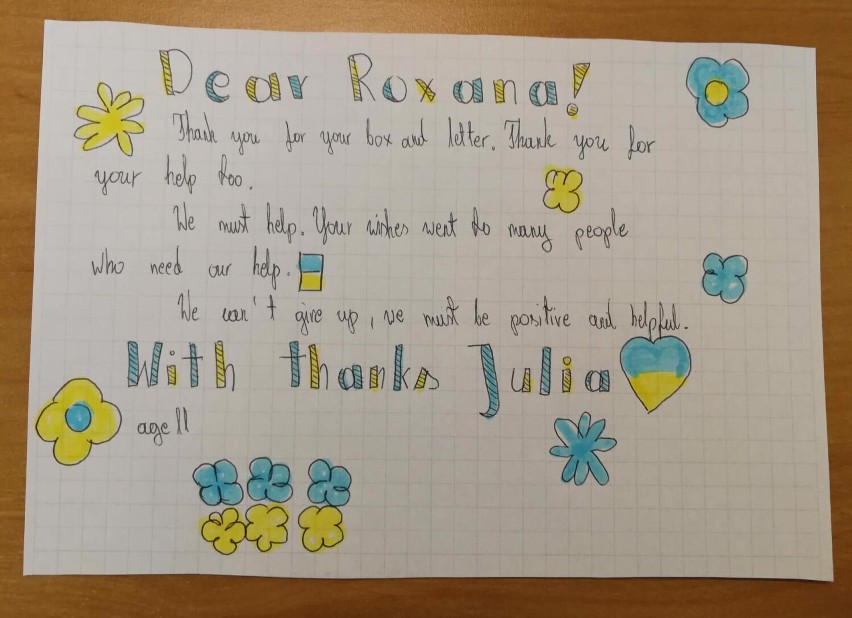 Dear Roxana!
Thank you for your box and letter. Thank you for
your help too.
We must help. Your wishes went to many people
who need our help.
We can't give up, we must be positive and helpful.
With thanks Julia
age 11